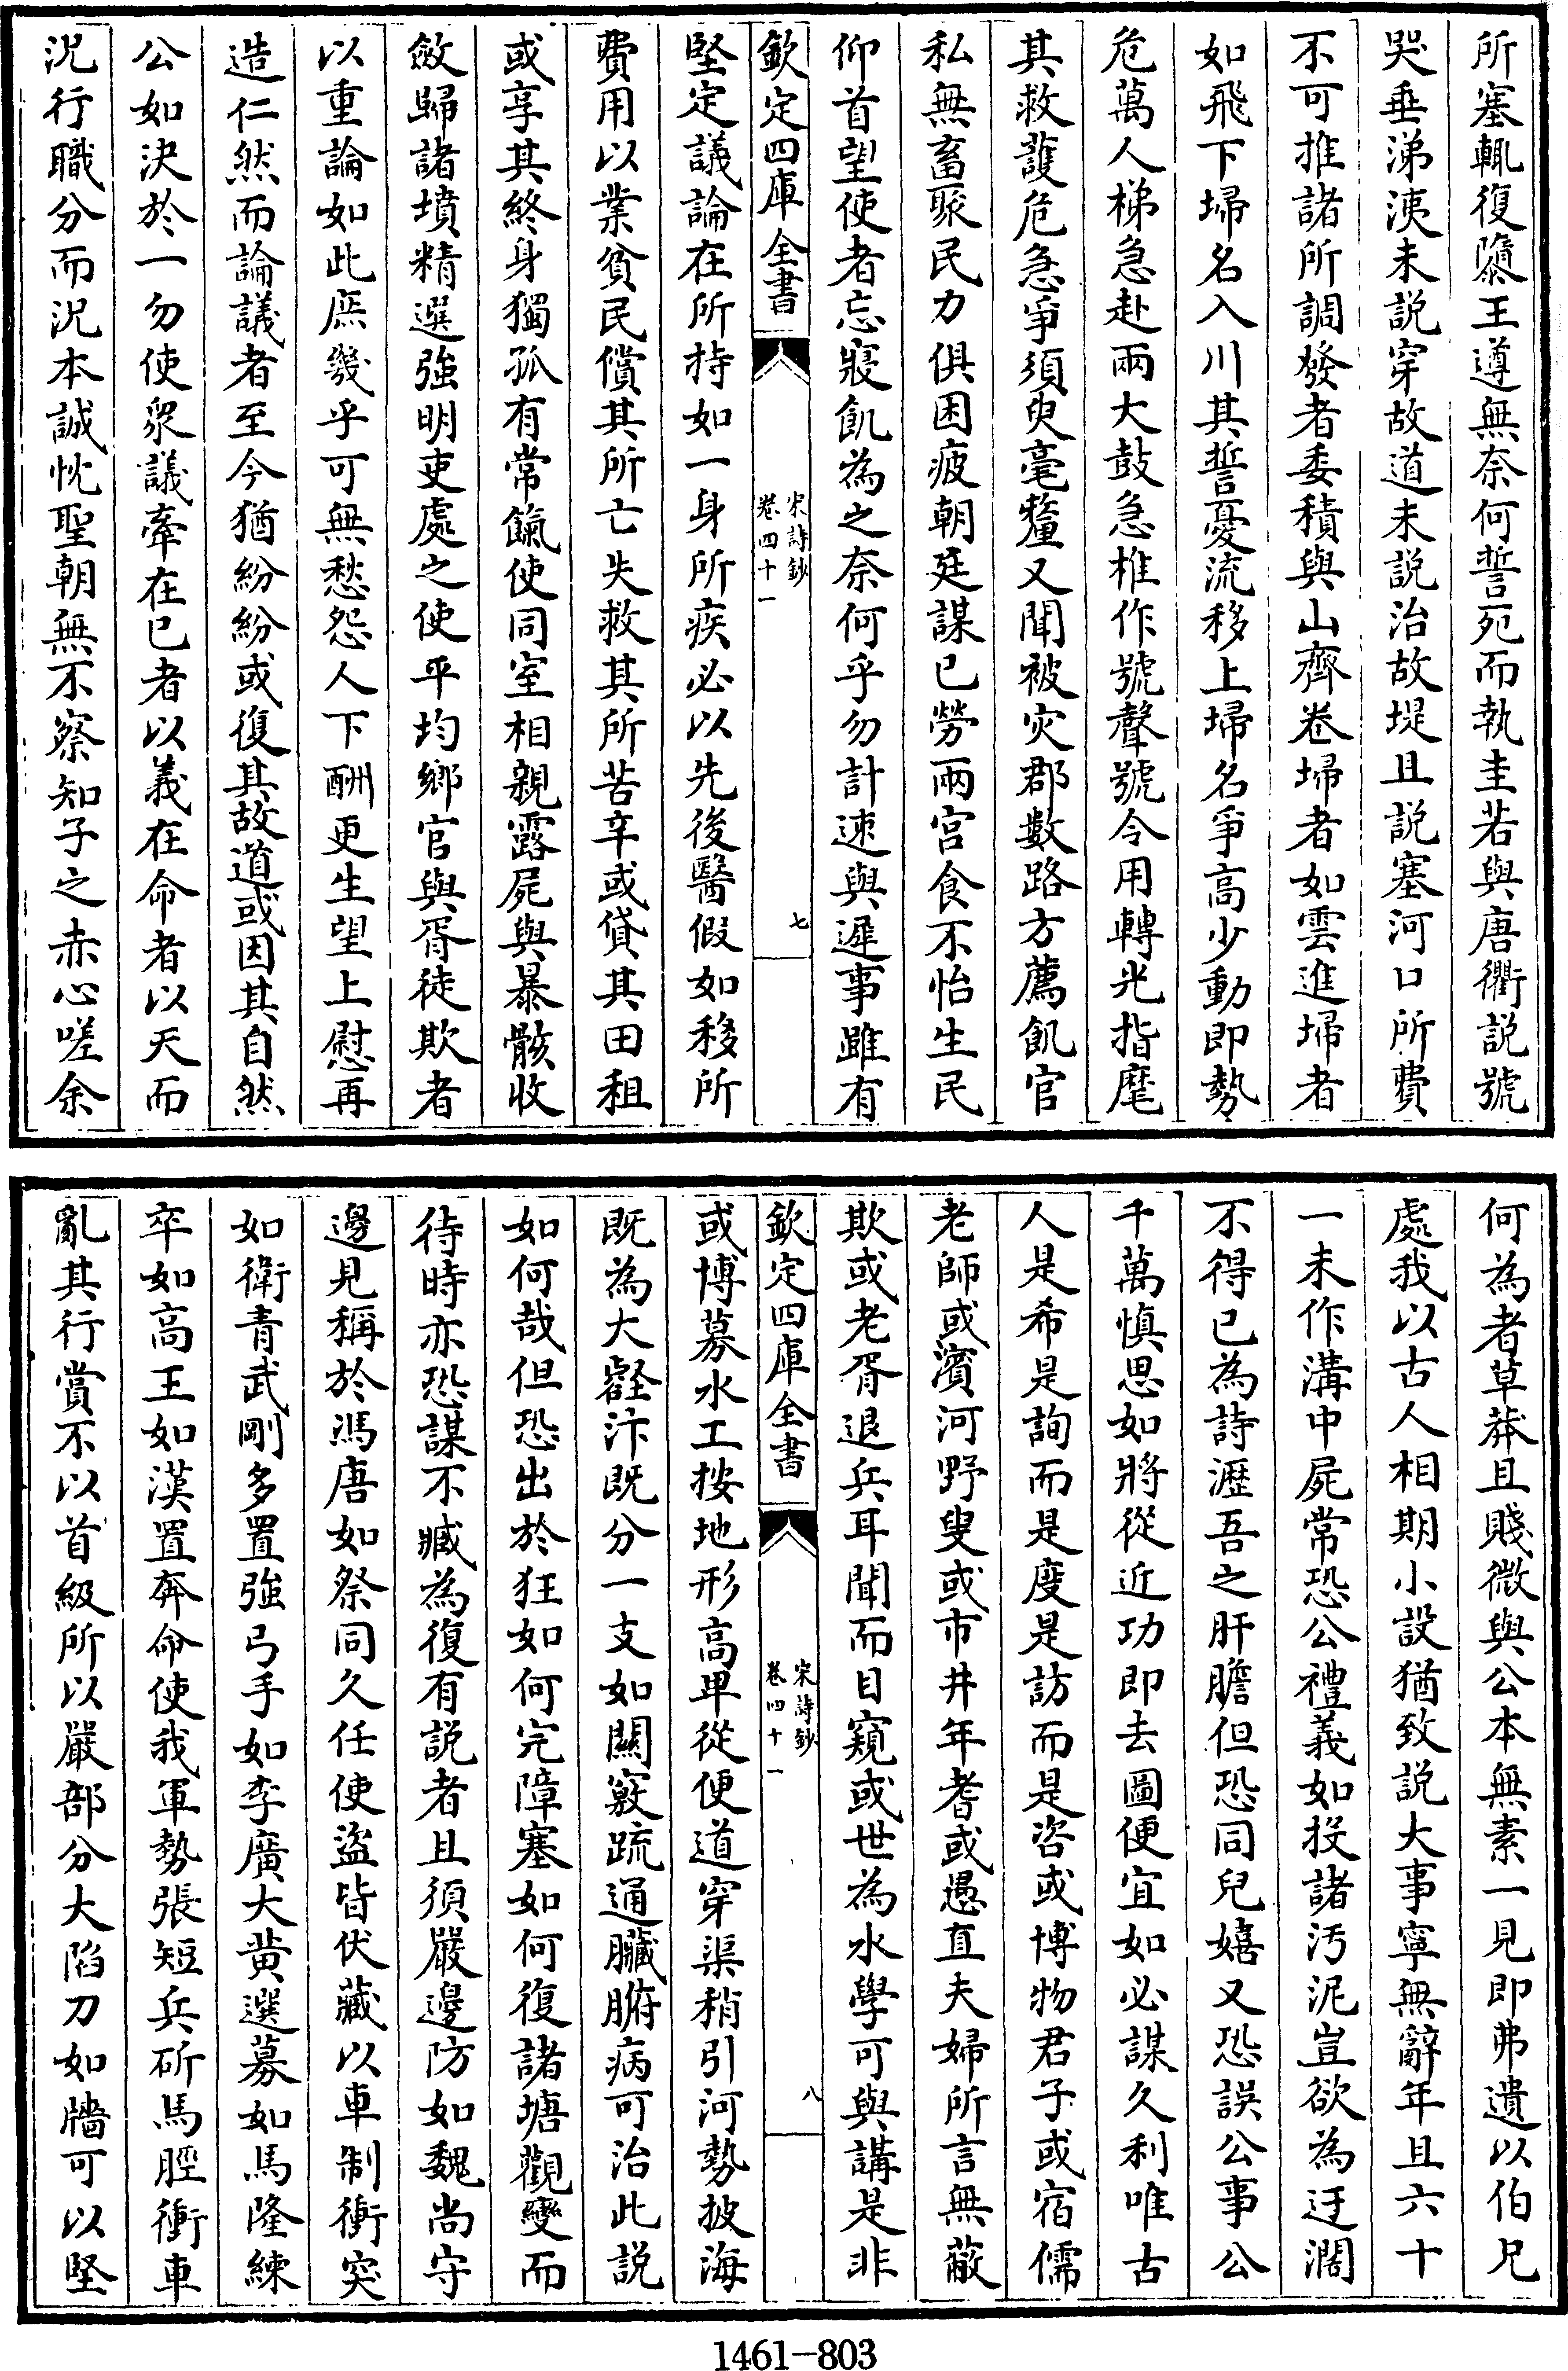 所塞輒復隳王遵無奈何誓死而執圭若與唐衢説號
哭垂涕洟未説穿故道未説治故堤且説塞河口所費
不可推諸所調發者委積與山齊卷埽者如雲進埽者
如飛下埽名入川其誓憂流移上埽名爭高少動即勢
危萬人梯急赴兩大鼓急椎作號聲號令用轉光指麾
其救護危急爭須臾毫釐又聞被灾郡數路方薦飢官
私無畜聚民力俱困疲朝廷謀已勞兩宫食不怡生民
仰首望使者忘寢飢為之奈何乎勿計速與遲事雖有
欽定四庫全書
宋詩鈔
卷四十一
七
堅定議論在所持如一身所疾必以先後醫假如移所
費用以業貧民償其所亡失救其所苦辛或貸其田租
或享其終身獨孤有常餼使同室相親露屍與暴骸收
斂歸諸墳精選強明吏處之使平均鄉官與胥徒欺者
以重論如此庶幾乎可無愁怨人下酬更生望上慰再
造仁然而論議者至今猶紛紛或復其故道或因其自然
公如決於一勿使衆議牽在已者以義在命者以天而
況行職分而況本誠忱聖朝無不察知子之赤心嗟余
何為者草莽且賤微與公本無素一見即弗遺以伯兄
處我以古人相期小設猶致説大事寧無辭年且六十
一未作溝中屍常恐公禮義如投諸汚泥豈欲為迂濶
不得已為詩瀝吾之肝膽但恐同兒嬉又恐誤公事公
千萬慎思如將從近功即去圖便宜如必謀久利唯古
人是希是詢而是度是訪而是咨或博物君子或宿儒
老師或濱河野叟或市井年耆或愚直夫婦所言無蔽
欺或老胥退兵耳聞而目窺或世為水學可與講是非
欽定四庫全書
宋詩鈔
卷四十一
八
或博募水工按地形高卑從便道穿渠稍引河勢披海
既為大壑汴既分一支如關竅疏通臟腑病可治此説
如何哉但恐出於狂如何完障塞如何復諸塘觀變而
待時亦恐謀不臧為復有説者且須嚴邊防如魏尚守
邊見稱於馮唐如祭同久任使盜皆伏藏以車制衝突
如衛青武剛多置強弓手如李廣大黄選募如馬隆練
卒如高王如漢置奔命使我軍勢張短兵斫馬脛衝車
亂其行賞不以首級所以嚴部分大陷刀如牆可以堅
1461-803